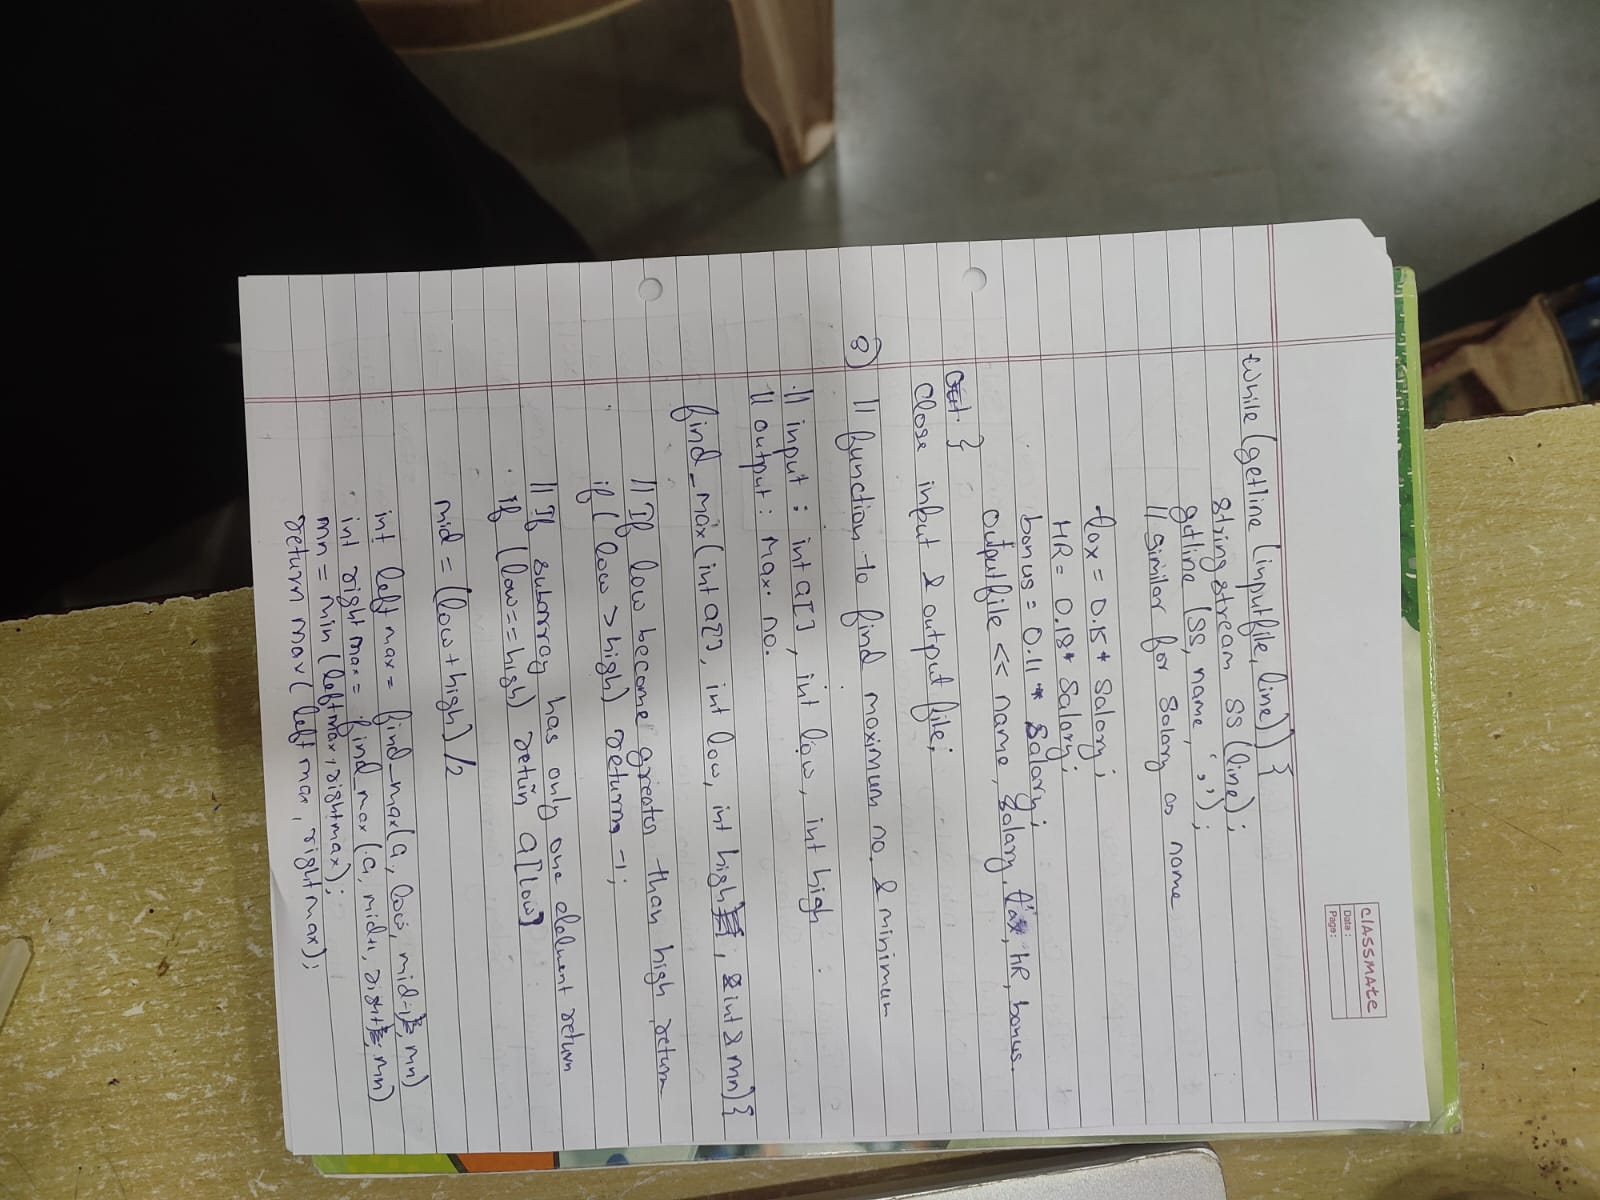 classmate
Date :
Page :
while (getline (inputfile, line)) {
stringstream ss (line);
getline (ss, name, ',');
// similar for salary as name
tax = 0.15 * salary;
HR = 0.18 * salary;
bonus = 0.11 * salary;
outputfile << name, salary, tax, HR, bonus.
}
close input & output file;
8) // function to find maximum no. & minimum
// input : int a[], int low, int high
// output : max. no.
find_max (int a[], int low, int high, int & mn) {
// If low become greater than high return
if ( low > high) return -1;
// If subarray has only one element return
if (low == high) return a[low]
mid = (low + high) / 2
int leftmax = find_max( a, low, mid-1, mn)
int rightmax = find_max (a, mid+1, right, mn)
mn = min (leftmax, rightmax);
return max (leftmax, rightmax);